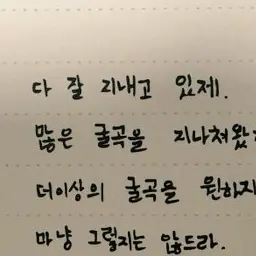 다 잘 지내고 있제.
많은 굴곡을 지나쳐왔
더이상의 굴곡을 원하지
마냥 그렇지는 않드라.